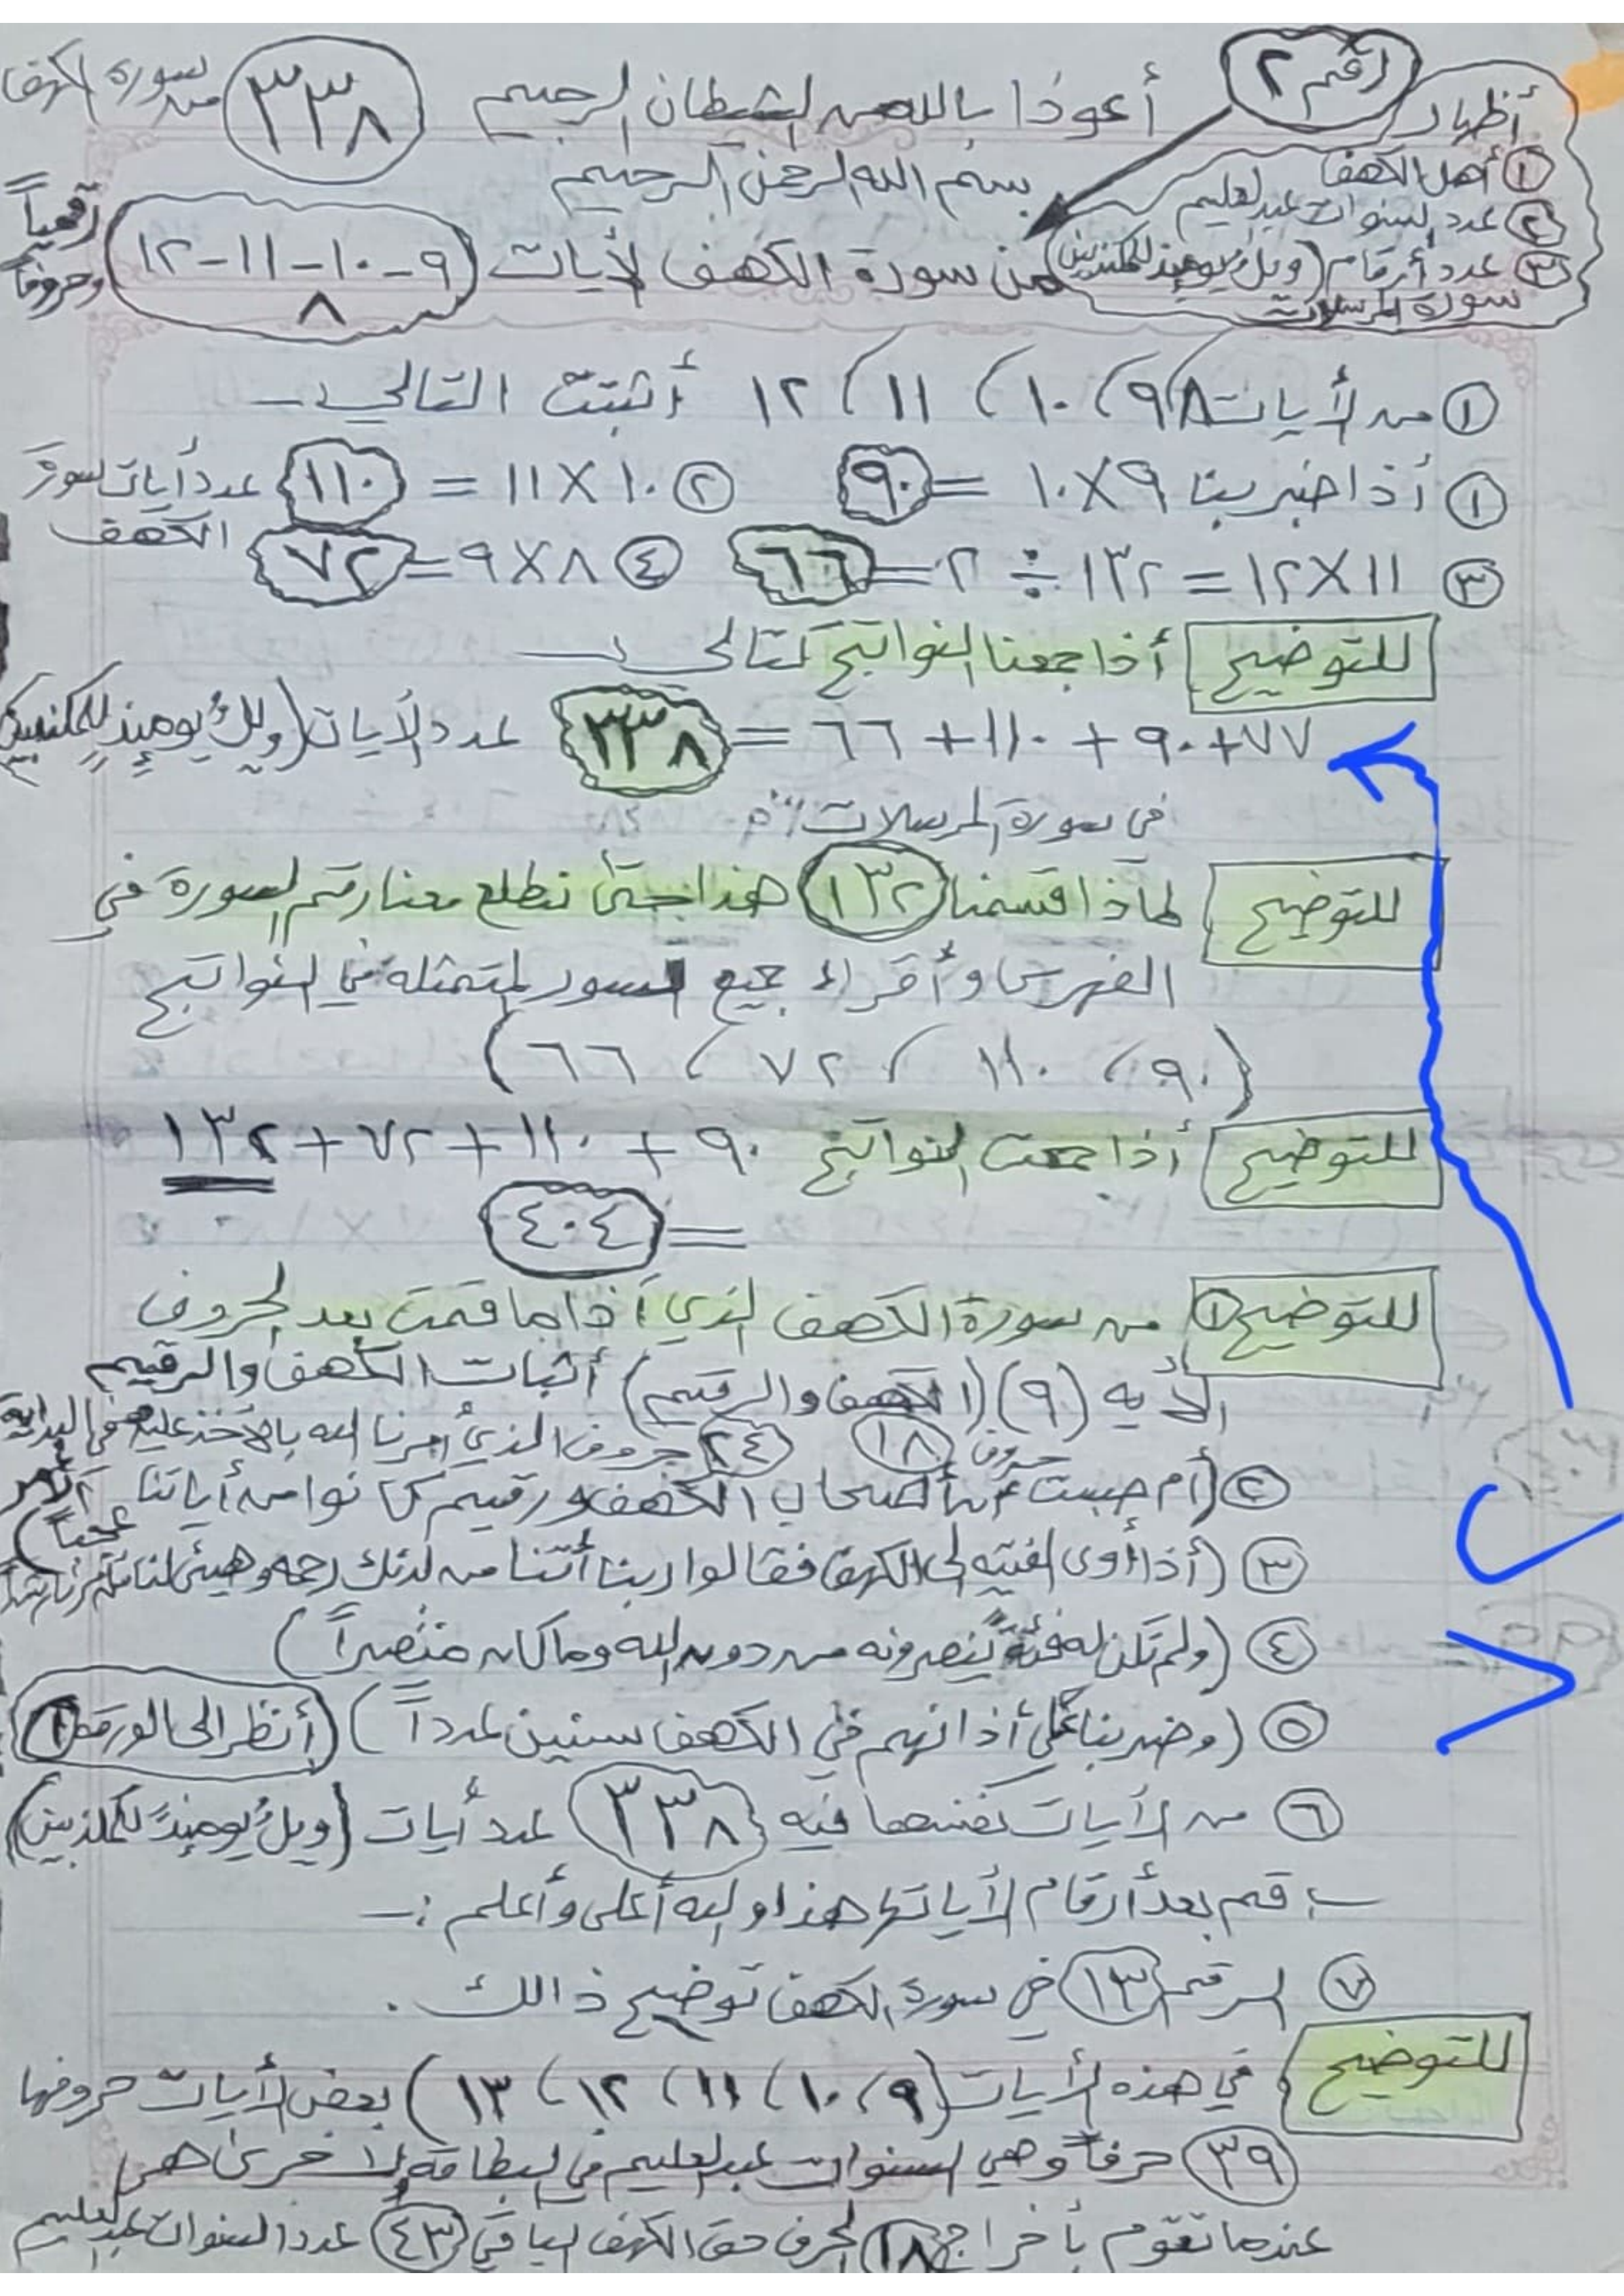 رقم ٢
أظهار
١ أهل الكهف
٢ عدد السنوات عبدالعليم
٣ عدد أرقام (ويلٌ يومئذ للمكذبين)
سورة المرسلات
أعوذا بالله من الشيطان الرجيم
٣٣٨ من سورة الكهف
بسم الله الرحمن الرحيم
من سورة الكهف الأيات ٩-١٠-١١-١٢
٨
رقمياً وحروفاً
١ من الأيات ٨، ٩، ١٠، ١١، ١٢ أثبتت التالي :-
١ أذا ضربنا ٩×١٠ = ٩٠ ٢ ١٠×١١ = ١١٠ عدد أيات سورة الكهف
٣ ١١×١٢ = ١٣٢ ÷ ٢ = ٦٦ ٤ ٨×٩ = ٧٢
للتوضيح أذا جمعنا النواتج كتالي :-
٧٢+٩٠+١١٠+٦٦ = ٣٣٨ عدد الأيات (ويلٌ يومئذٍ للمكذبين)
في سورة المرسلات
للتوضيح لماذا قسمنا ١٣٢ هذا حتى تطلع معنا رقم السورة في
الفهرس وأقراء جميع السور المتمثله في النواتج
(٩٠، ١١٠، ٧٢، ٦٦)
للتوضيح أذا جمعت النواتج ٩٠ + ١١٠ + ٧٢ + ١٣٢
= ٤٠٤
للتوضيح ١ من سورة الكهف الذي أذا ما قمت بعد الحروف
الأيه (٩) (الكهف والرقيم) أثبات الكهف والرقيم
حروف ١٨ ٢٤ حروف الذي أمرنا الله بالأخذ عليه في البداية
٢ (أم حسبت أن أصحاب الكهف ورقيم كانوا من أياتنا عجباً)
٣ (أذا أوى الفتيه إلى الكهف فقالوا ربنا أتنا من لدنك رحمه وهيئ لنا من أمرنا رشدا
٤ (ولم تكن له فئةٌ ينصرونه من دون الله وما كان منتصراً)
٥ (وضربنا على أذانهم في الكهف سنين عدداً) (أنظر الى الورقه ١)
٦ من الأيات نفسها فيه ٣٣٨ عدد أيات (ويلٌ يومئذٍ للمكذبين)
ب قم بعد أرقام الأيات هذا والله أعلى وأعلم :-
٧ الرقم ١٣ في سورة الكهف توضيح ذالك .
للتوضيح في هذه الأيات (٩، ١٠، ١١، ١٢، ١٣) بعض الأيات حروفها
٣٩ حرفاً وهي السنوات عبدالعليم في البطاقة والأخرى هي
عندما تقوم بأخراج ١٨ الحرف حق الكهف الباقي ٤٣ عدد السنوات عبدالعليم